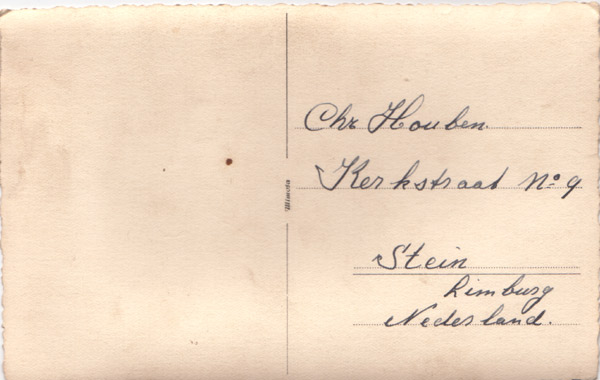 Chr Houben.
Kerkstraat No 9
Stein
Limburg
Nederland.
Mimosa